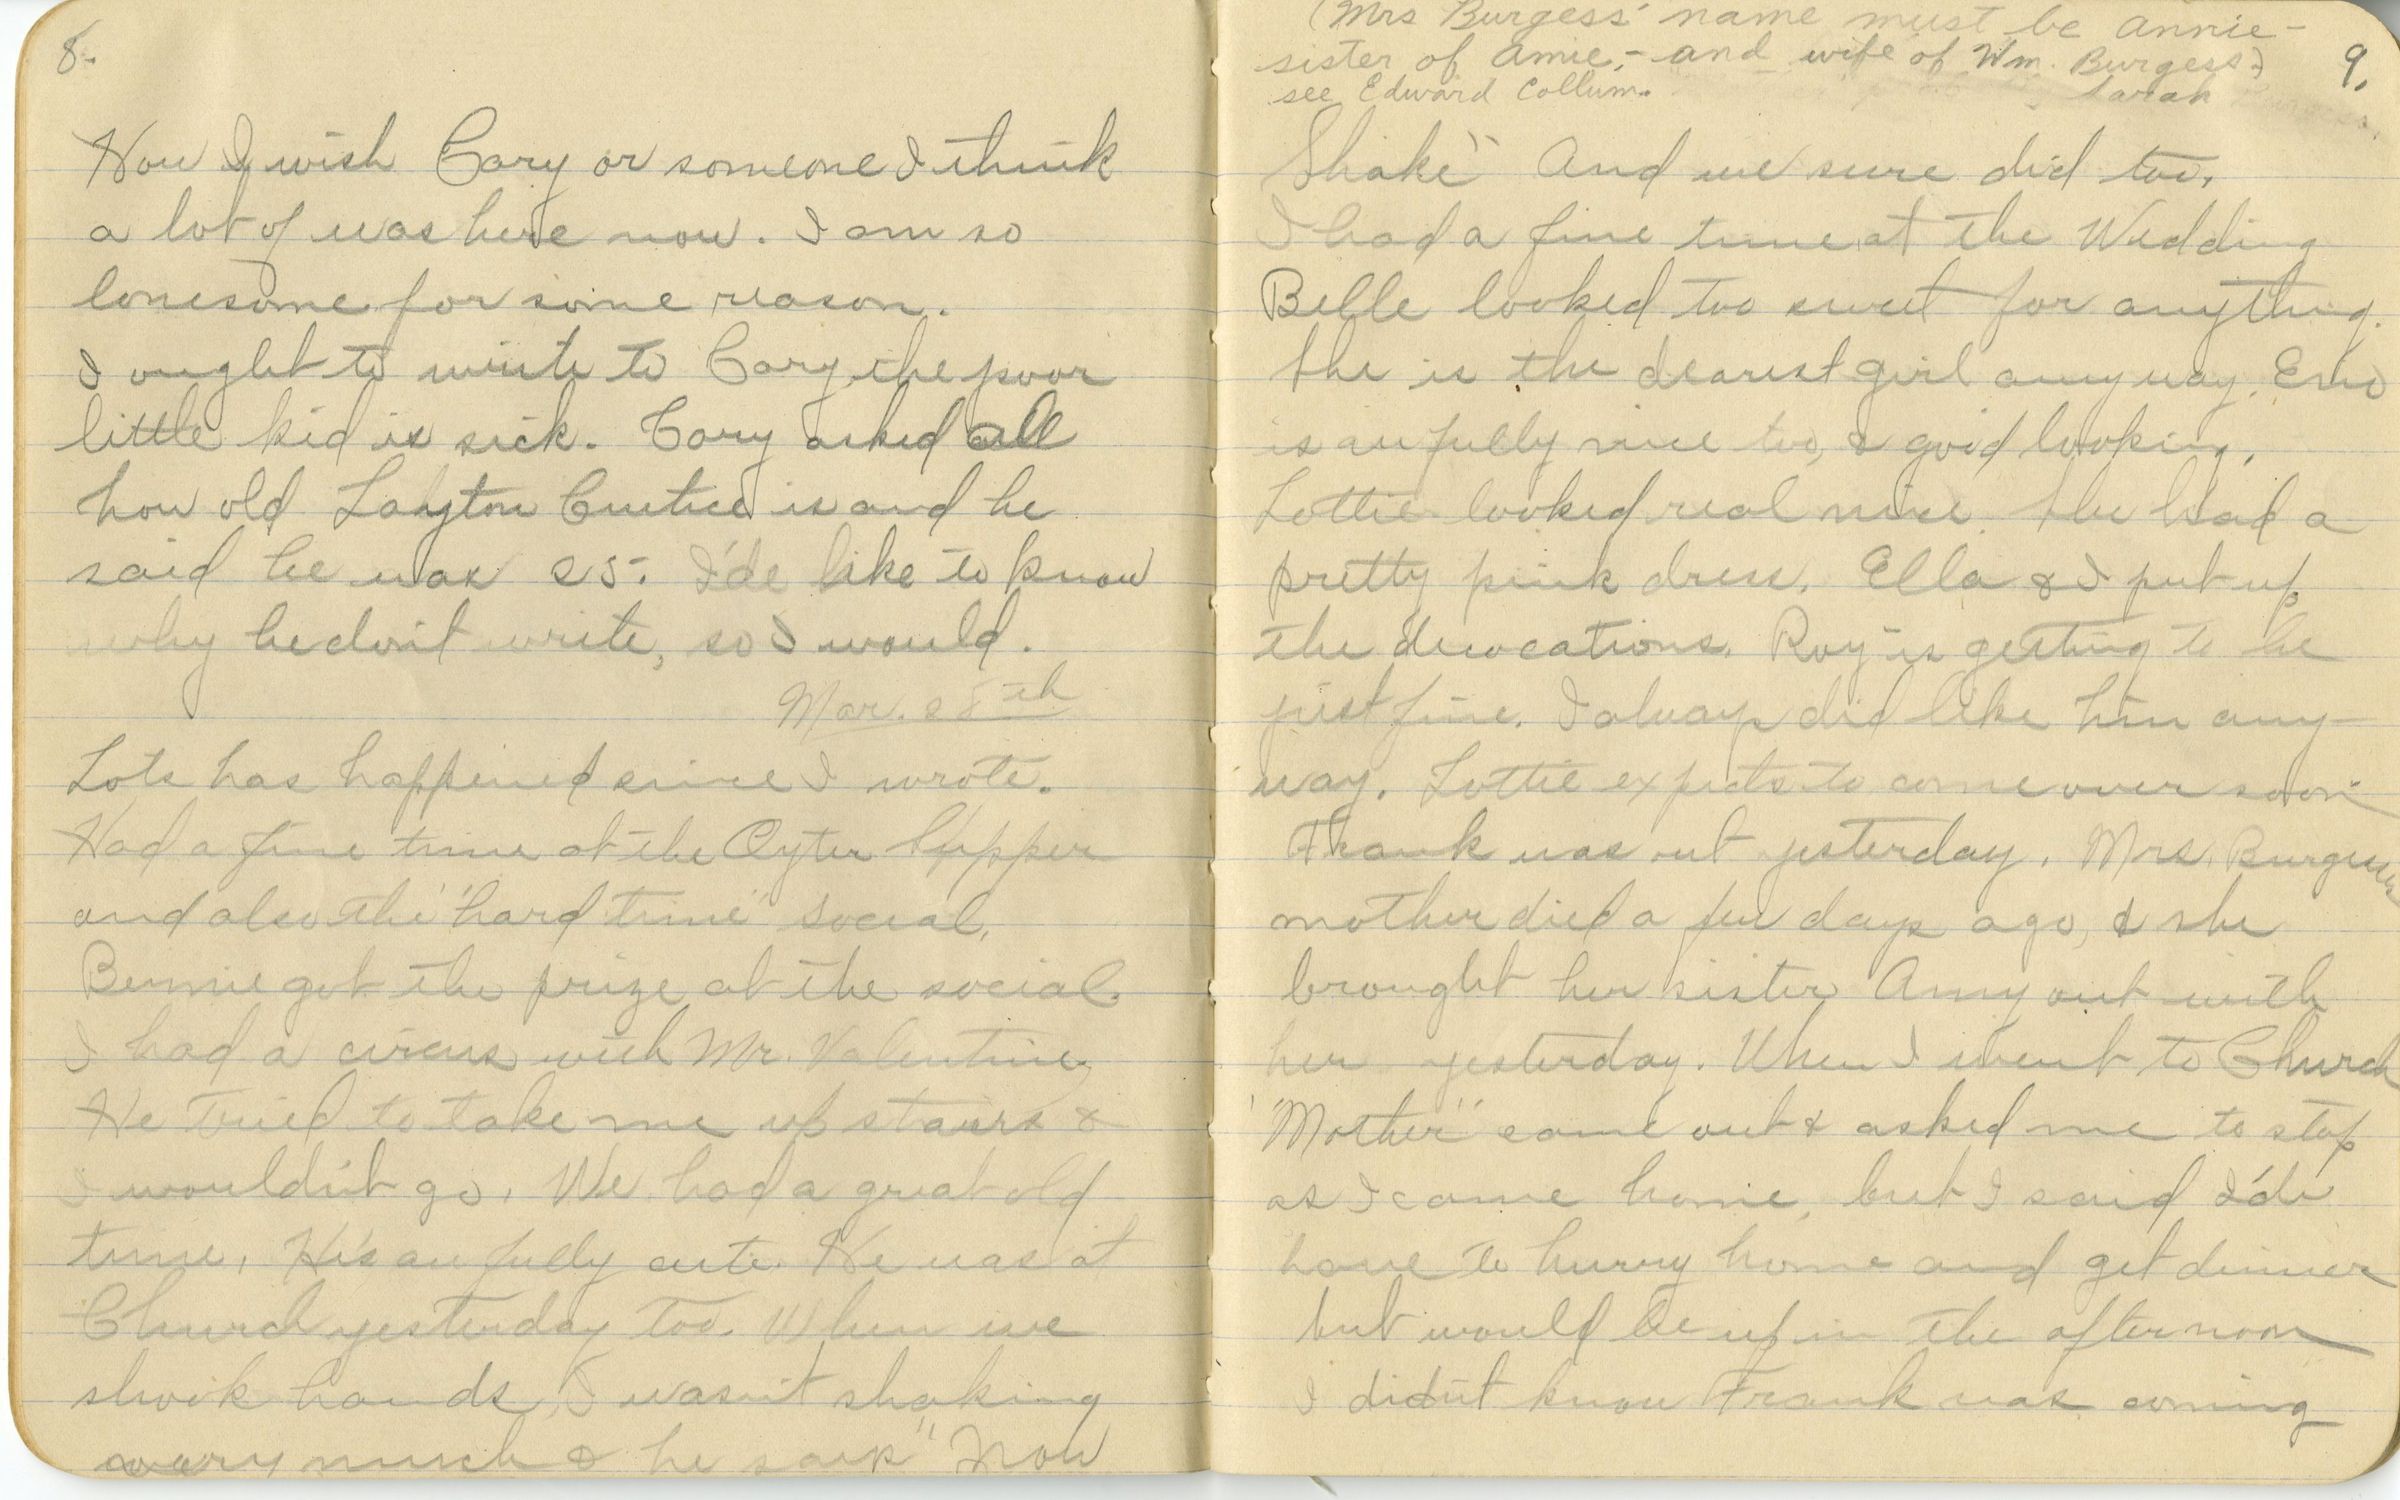 8.
How I wish Cary or someone I think
a lot of was here now. I am so
lonesome for some reason.
I ought to write to Cary, the poor
little kid is sick. Cary asked all
how old Layton Custice is and he
said he was 25. I'de like to know
why he don't write, so I would.
Mar. 28th
Lots has happened since I wrote.
Had a fine time at the Oyter Supper
and also the "hard time" social.
Bennie got the prize at the social.
I had a circus with Mr. Valentine.
He tried to take me up stairs &
I wouldn't go. We had a great old
time. He's aufully cute. He was at
Church yesterday too. When we
shook hands, I wasn't shaking
very much & he said "Now
(Mrs Burgess' name must be Annie -
sister of Amie, - and wife of Wm. Burgess.)
see Edward Collum. Sarah
9.
Shake" And we sure did too.
I had a fine time at the Wedding
Belle looked too sweet for anything.
She is the dearest girl anyway. Eno
is aufully nice too, & good looking.
Lottie looked real nice. She had a
pretty pink dress. Ella & I put up
the decocations. Roy is getting to be
just fine. I always did like him any-
way. Lottie expects to come over soon
Frank was out yesterday. Mrs. Burgess
mother died a few days ago, & she
brought her sister Amy out with
her yesterday. When I went to Church
"Mother" came out & asked me to stop
as I came home, but I said I'de
have to hurry home and get dinner
but would be up in the afternoon
I didn't know Frank was coming